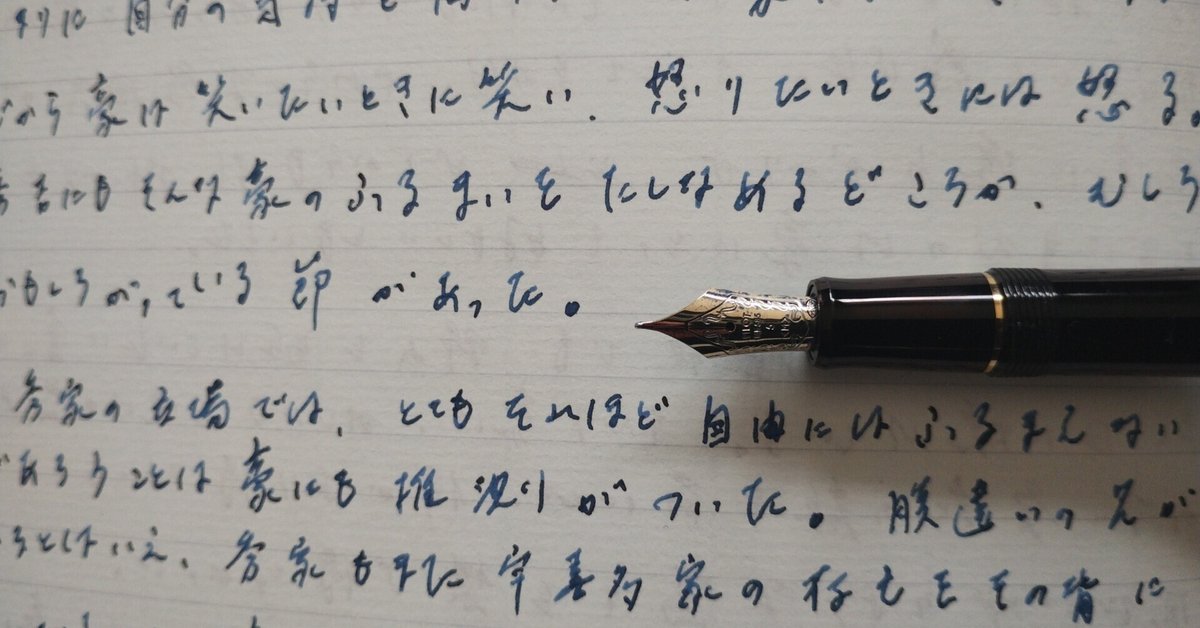 りに自分の自
から豪は笑いたいときに笑い、怒りたいときには怒る。
吉にもそんな豪のふるまいをたしなめるどころか、むしろ
おもしろがっている節があった。
秀家の立場では、とてもそれほど自由にはふるまえない
であろうことは豪にも推測りがついた。腹違いの兄が
るとはいえ、秀家もまた宇喜多家の存亡をその背に